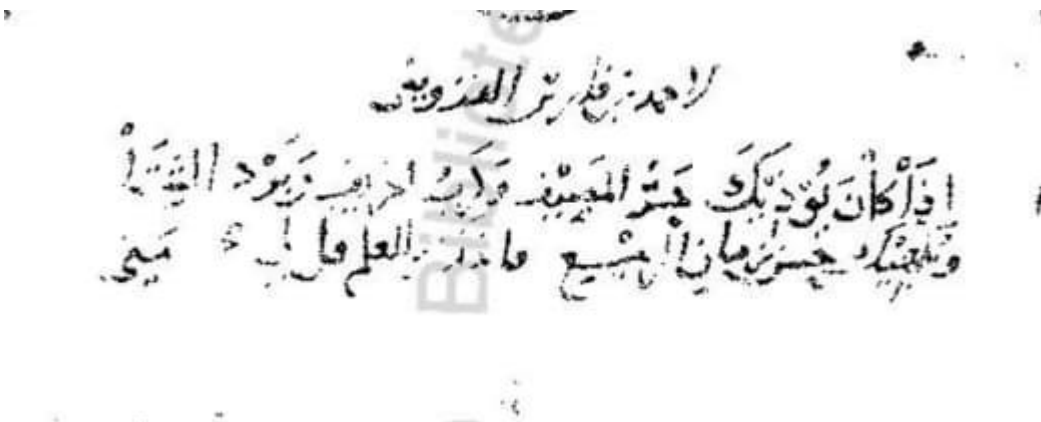 لاحمد بن فارس القزويني
اذا كان يؤذيك حر المصيف وكرب الخريف وبرد الشتا
ويلهيك حسن زمان الربيع فاخذك للعلم قل لي متى
Bibliote